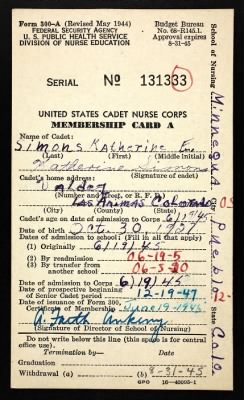 Form 300-A (Revised May 1944)
FEDERAL SECURITY AGENCY
U. S. PUBLIC HEALTH SERVICE
DIVISION OF NURSE EDUCATION
Budget Bureau
No. 68-R145.1.
Approval expires
8-31-45
SERIAL No 131333
UNITED STATES CADET NURSE CORPS
MEMBERSHIP CARD A
Name of Cadet:
Simons Katherine
(Last) (First) (Middle initial)
Katherine Simons
(Signature of cadet)
Cadet's home address:
(Number and street, or R. F. D.)
Las Animas Colorado
(City) (County) (State)
Cadet's age on date of admission to Corps
Date of birth Oct. 30 1927
Dates of admission to school: (Fill in all that apply)
(1) Originally 6/19/45
(2) By readmission 06-19-5
(3) By transfer from
another school
Date of admission to Corps 6/19/45
Date of prospective beginning
of Senior Cadet period 12-19-47
Date of issuance Form 300,
Certificate of Membership June 19-1945
A. Faith Ankeny
(Signature of Director of School of Nursing)
Do not write below this line (this space is for central
office use).
Termination by— Date
Graduation
Withdrawal (a) (b) 8-31-45
GPO 16-40005-1
School of Nursing Minnequa
City Pueblo
State Colo